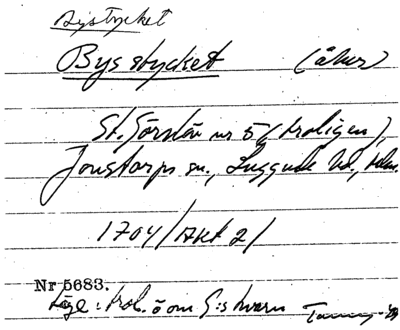 Bystycket
Bysstycket (åker)
St. Görslöv nr 5 (troligen),
Jonstorps sn., Luggude hd,
1704/Akt 2/
Nr 5683.
Läge: trol. ö om G:s kvarn